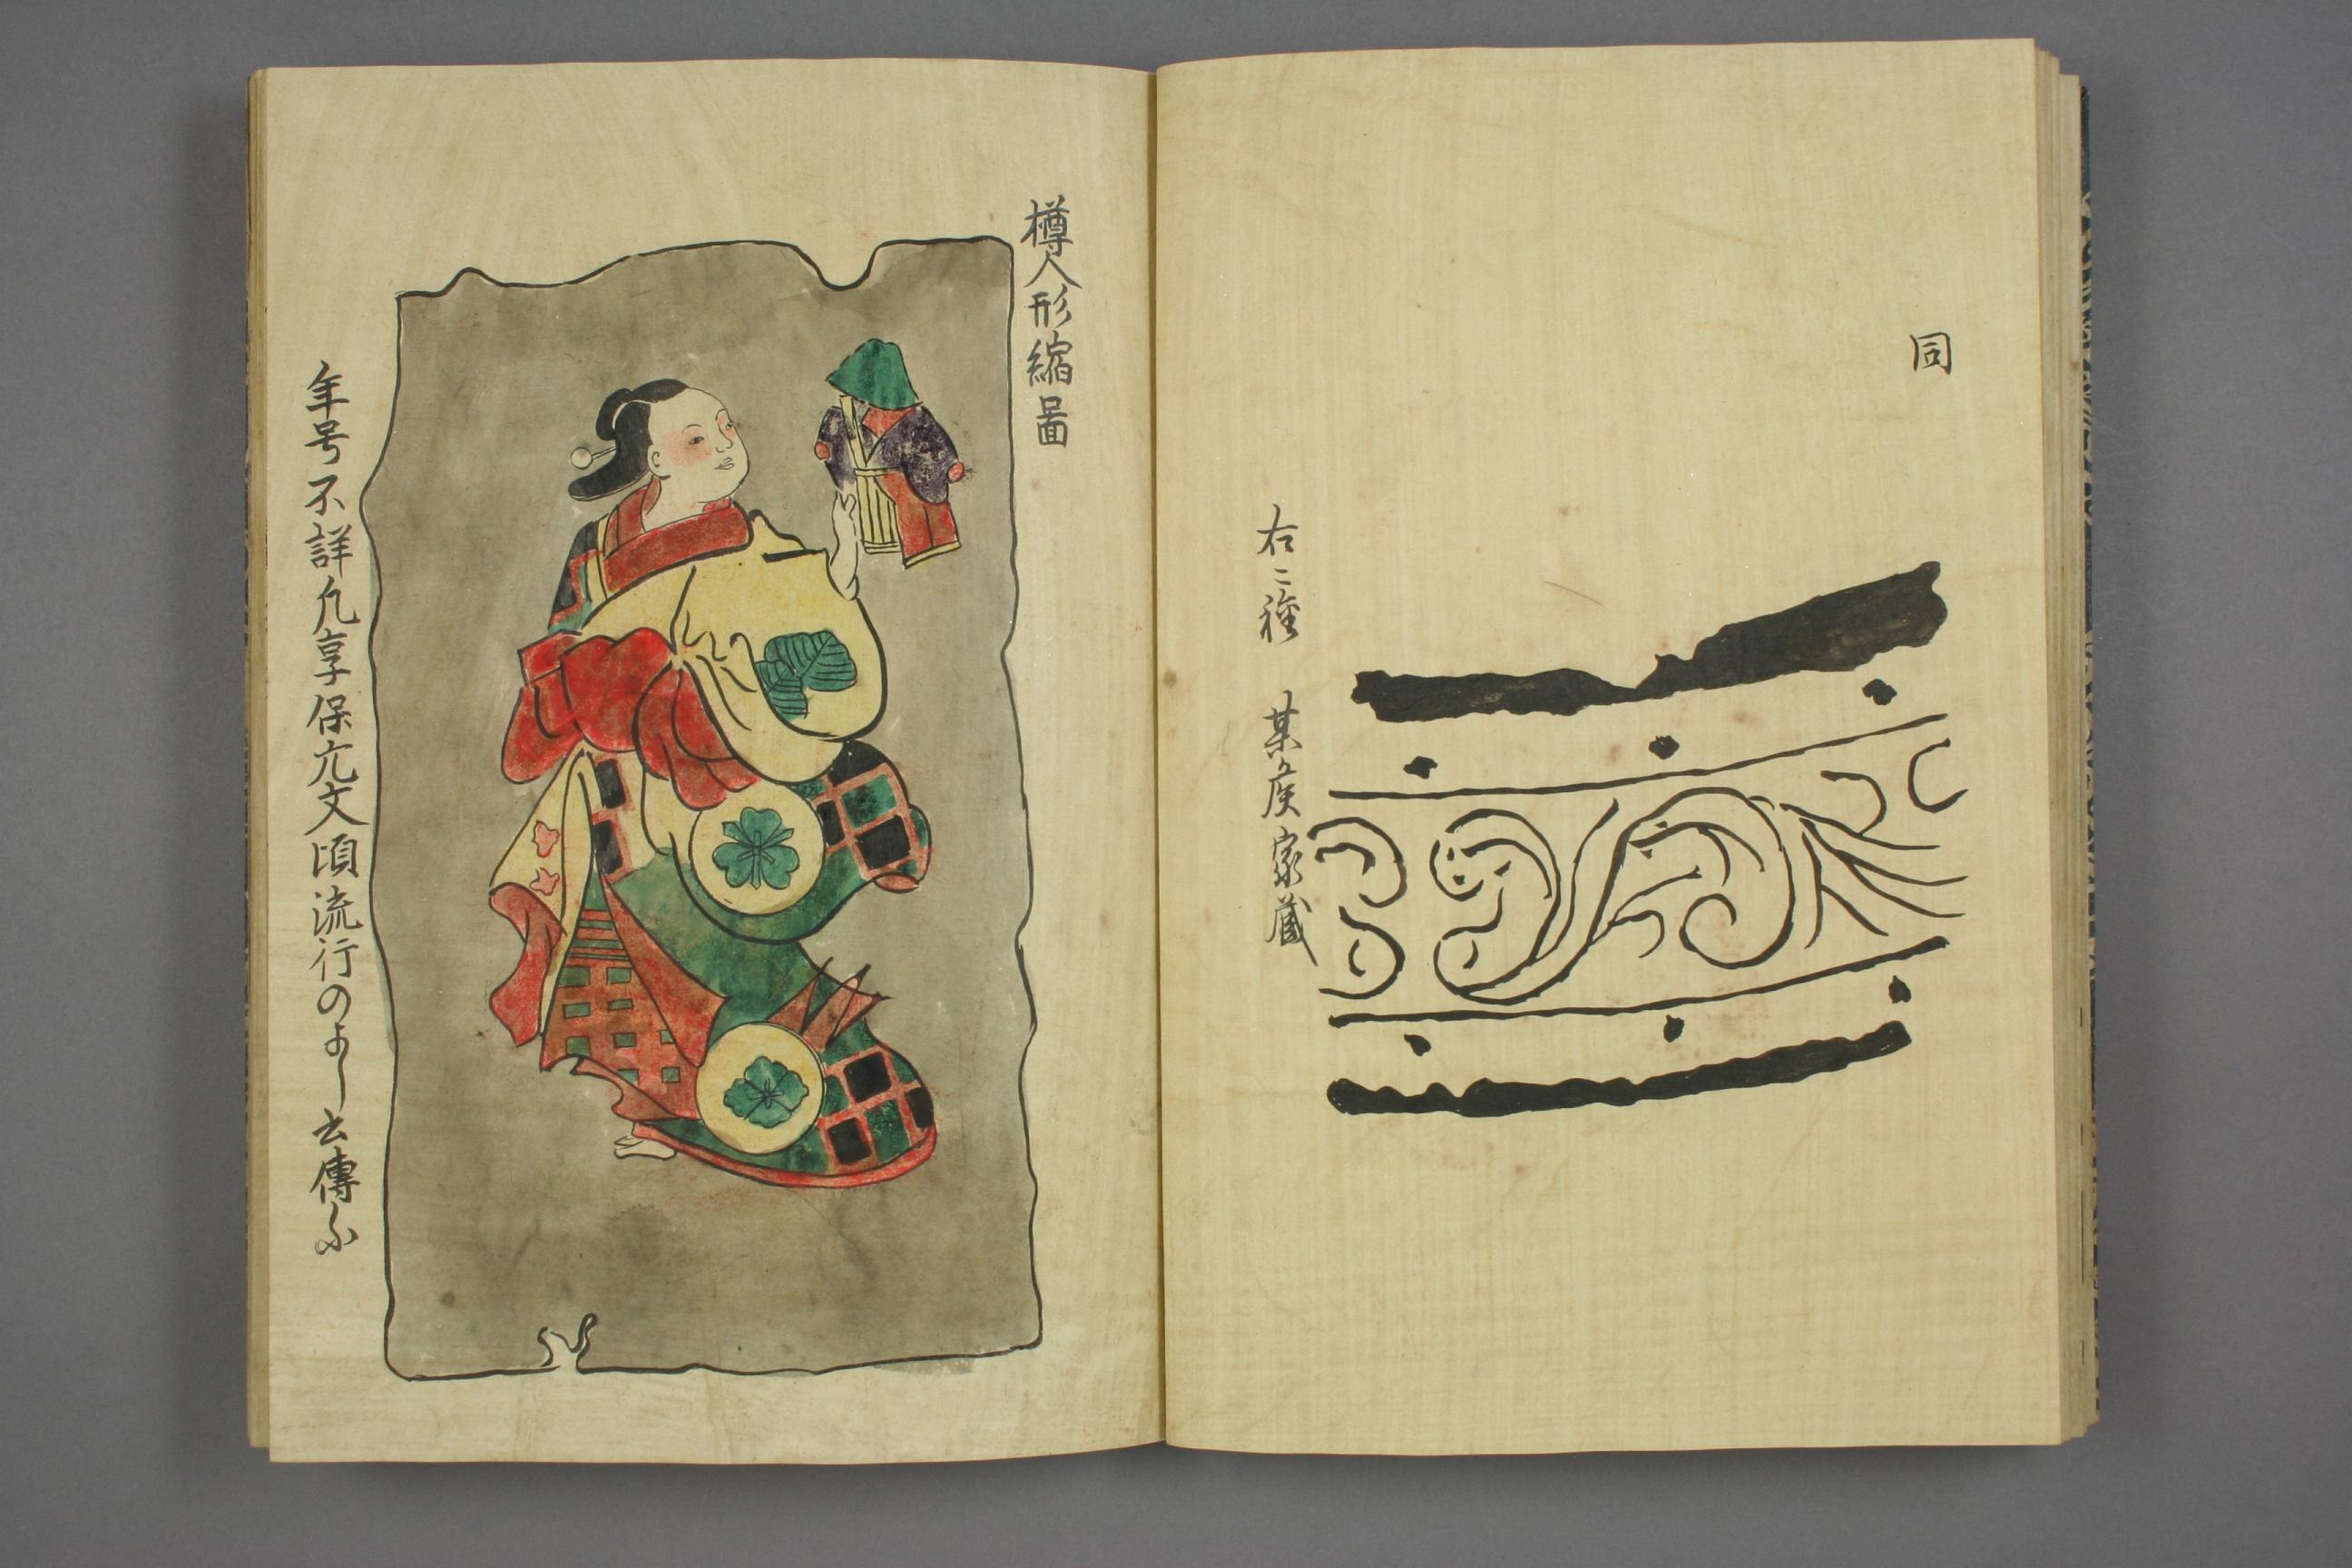 同
右二種 某侯家蔵
樽人形縮啚
年号不詳凡享保亢文頃流行のよし云傳ふ